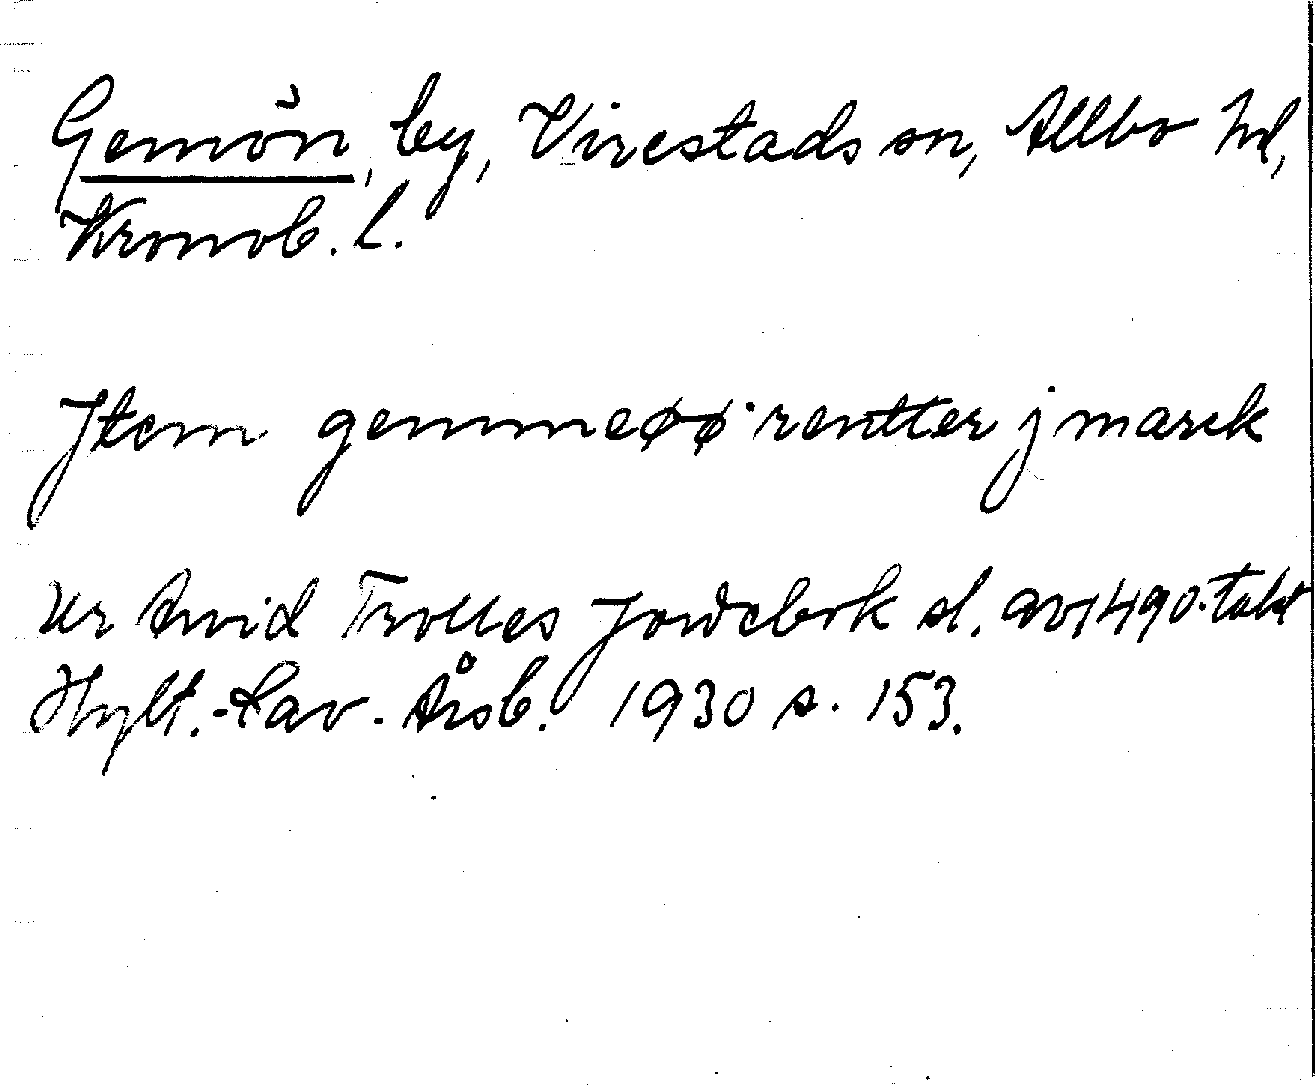 Gemön, by, Virestads sn, Allbo hd,
Kronob. l.
Jtem gemmeøø rentter j marck
Ur Arvid Trolles Jordebok sl. av 1490-talet
Hylt.-Cav.-Årsb. 1930 s. 153.